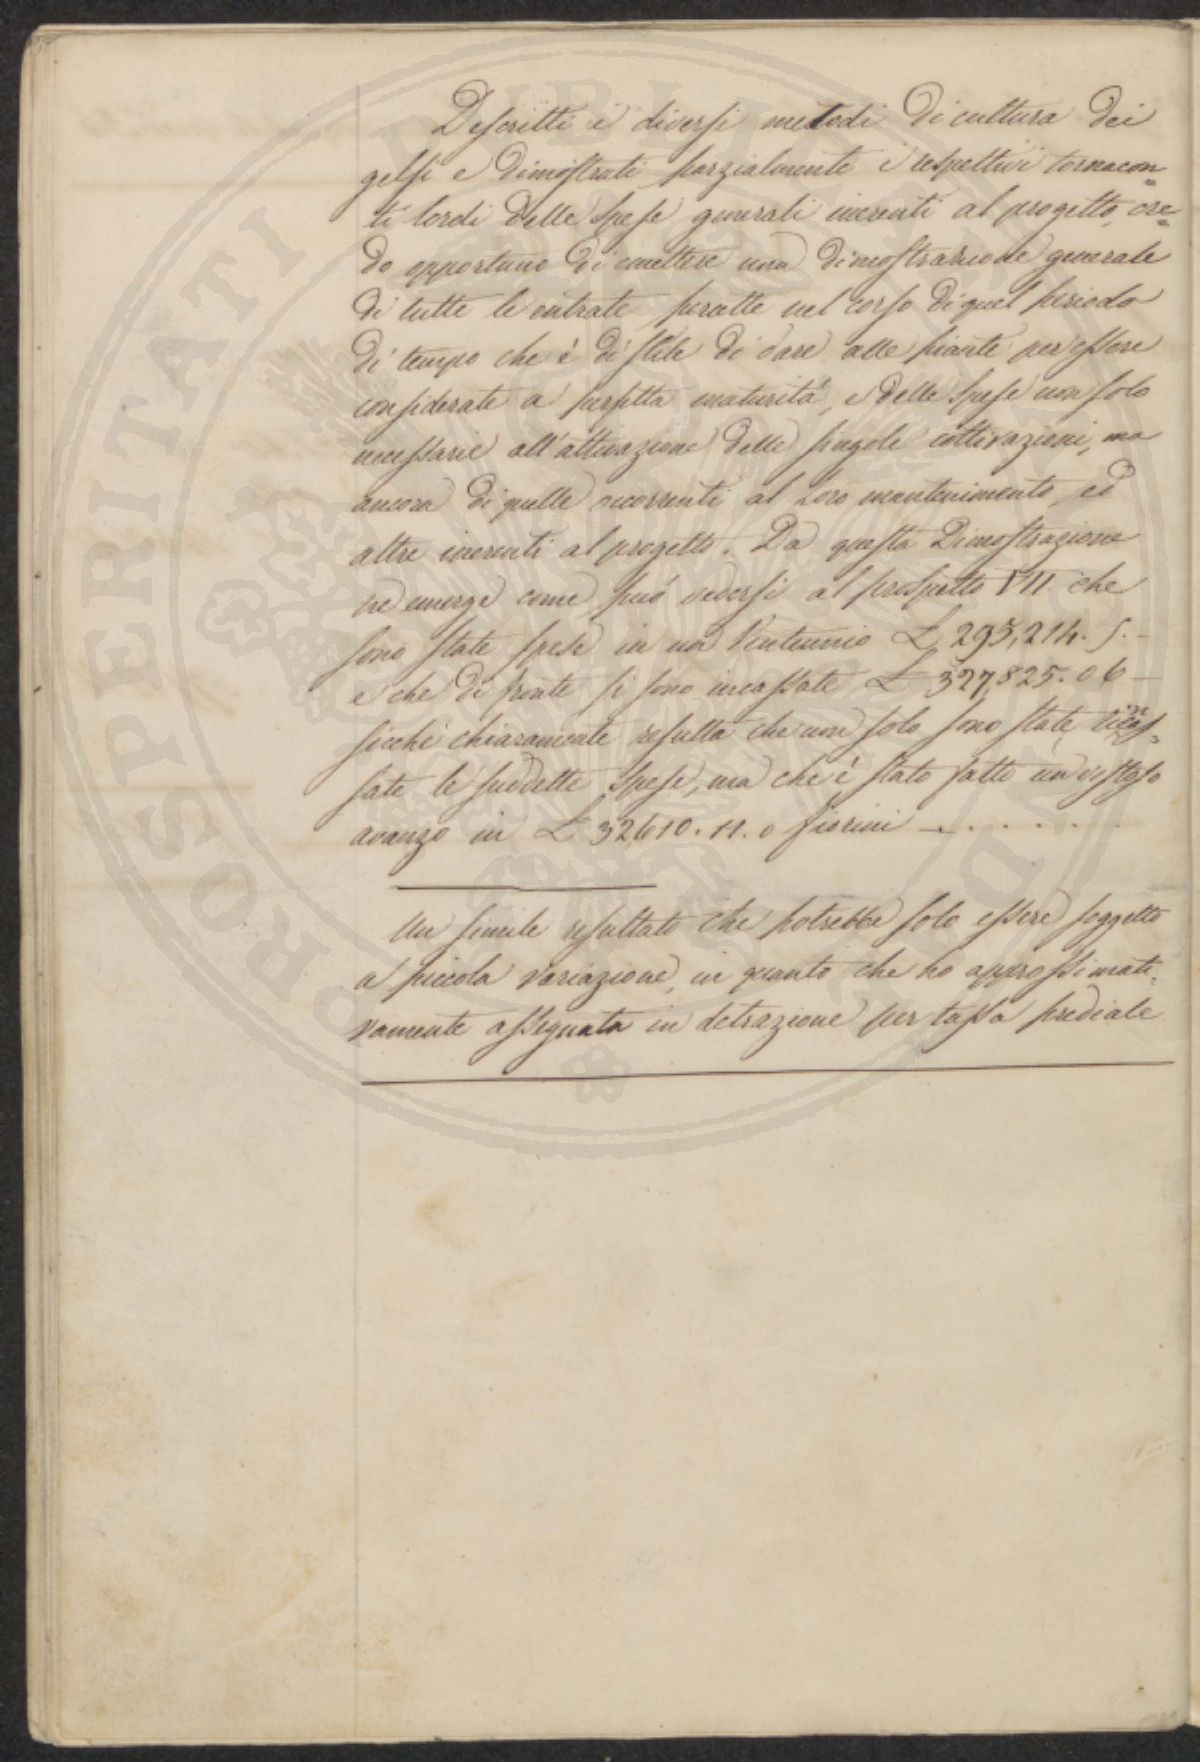 Descritti i diversi metodi di cultura dei
gelsi e dimostrati parzialmente i respettivi tornacon=
ti lordi delle spese generali inerenti al progetto, cre=
do opportuno di emettere una dimostrazione generale
di tutte le entrate percette nel corso di quel periodo
di tempo che è di stile di dare alle piante per essere
considerate a perfetta maturità, e delle spese non solo
necessarie all'attivazione delle singole coltivazioni, ma
ancora di quelle occorrenti al loro mantenimento, ed
altre inerenti al progetto. Da questa Dimostrazione
ne emerge come può vedersi al prospetto VII che
sono state spese in un Ventennio £ 295,214. 5. -
e che di fronte si sono incassate £ 327,825. 06 -
sicchè chiaramente resulta che non solo sono state rincas=
sate le suddette spese, ma che è stato fatto un
avanzo in £ 32610. 11. o fiorini - . . . . .
Un simile resultato che potrebbe solo essere soggetto
a piccola variazione, in quanto che ho approssimati=
vamente assegnata in detrazione per tassa prediale
PROSPERITATI PUBLICAE